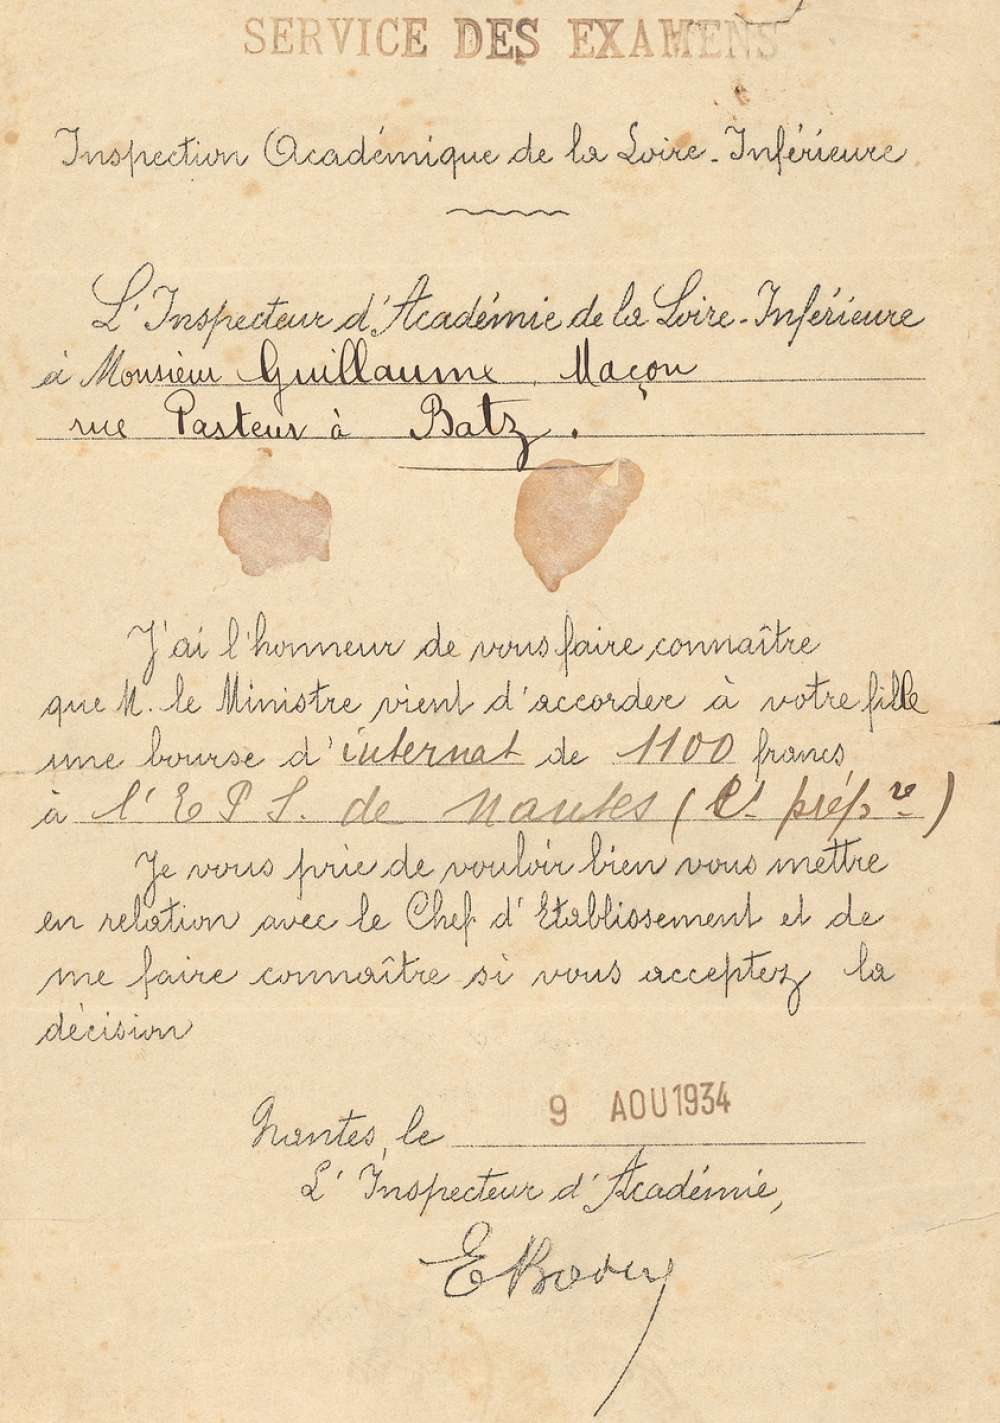 SERVICE DES EXAMENS
Inspection Académique de la Loire-Inférieure
L'Inspecteur d'Académie de la Loire-Inférieure
à Monsieur Guillaume, Maçon
rue Pasteur à Batz.
J'ai l'honneur de vous faire connaître
que M. le Ministre vient d'accorder à votre fille
une bourse d'internat de 1100 francs,
à l'E P S. de Nantes (Cl. prépre)
Je vous prie de vouloir bien vous mettre
en relation avec le Chef d'Etablissement et de
me faire connaître si vous acceptez la
décision
Nantes, le 9 AOU 1934
L'Inspecteur d'Académie,